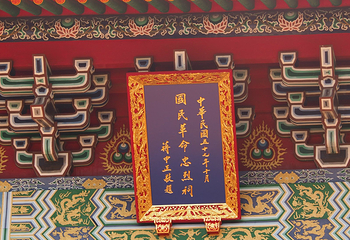 中華民國五十八年十月
國民革命忠烈祠
蔣中正敬題